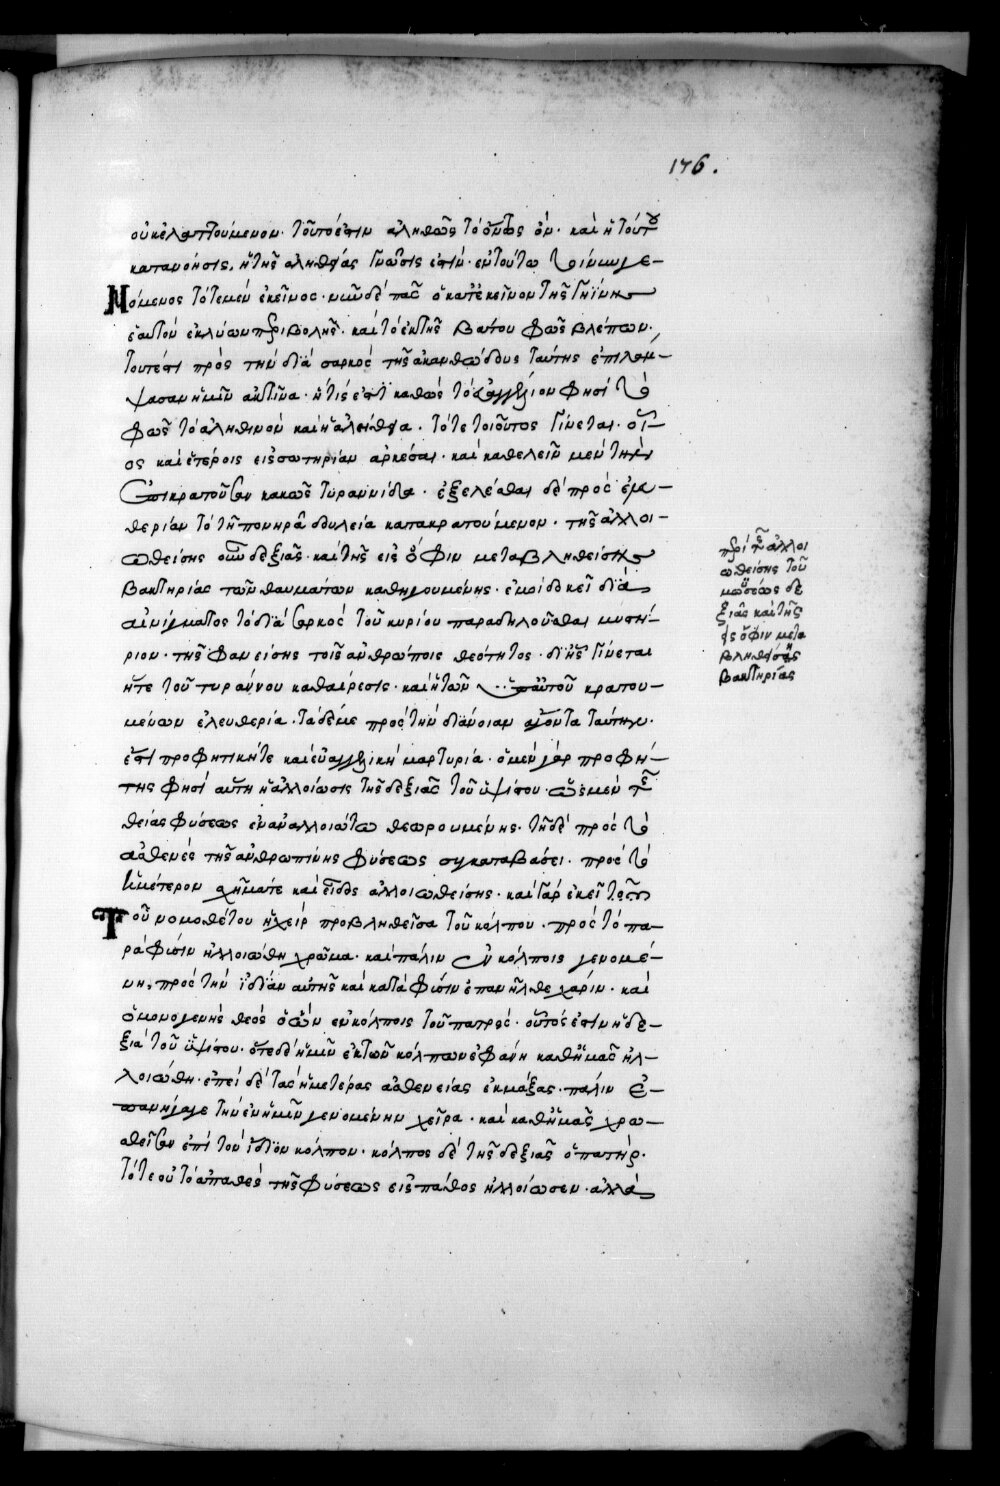 176.
οὐκ ἐλαττούμενον· τοῦτό ἐστιν ἀληθῶς τὸ ὄντως ὄν· καὶ ἡ τούτου
κατανόησις, ἡ τῆς ἀληθείας γνῶσις ἐστίν· ἐν τούτῳ τοίνυν γε–
Νόμενος τότε μὲν ἐκεῖνος· νυνὶ δὲ πᾶς ὁ κατ' ἐκεῖνον τῆς γηΐνης
ἑαυτὸν ἐκλύων περιβολῆς· καὶ τὸ ἐκ τῆς βάτου φῶς βλέπων·
τουτέστι πρὸς τὴν διὰ σαρκὸς τῆς ἀκανθώδους ταύτης ἐπιλάμ–
ψασαν ἡμῖν ἀκτῖνα· ἥτις ἐστὶ καθὼς τὸ εὐαγγέλιον φησὶ τὸ
φῶς τὸ ἀληθινὸν καὶ ἡ ἀλήθεια· τότε τοιοῦτος γίνεται· οἷ–
ος καὶ ἑτέροις εἰς σωτηρίαν ἀρκέσαι· καὶ καθελεῖν μὲν τὴν
ἐπικρατοῦσαν κακῶς τυραννίδα· ἐξελέσθαι δὲ πρὸς ἐλευ–
θερίαν τὸ τῇ πονηρᾷ δουλείᾳ κατακρατούμενον· τῆς ἀλλοι–
ωθείσης οὖν δεξιᾶς· καὶ τῆς εἰς ὄφιν μεταβληθείσης
βακτηρίας τῶν θαυμάτων καθηγουμένης· ἐμοὶ δοκεῖ διὰ
αἰνίγματος τὸ διὰ σαρκὸς τοῦ κυρίου παραδηλοῦσθαι μυστή–
ριον· τῆς φανείσης τοῖς ἀνθρώποις θεότητος· δι' ἧς γίνεται
ἥτε τοῦ τυράννου καθαίρεσις· καὶ ἡ τῶν ὑπ' αὐτοῦ κρατου–
μένων ἐλευθερία· τὰ δέ με πρὸς τὴν διάνοιαν ἄγοντα ταύτην·
ἐστὶ προφητική τε καὶ εὐαγγελικὴ μαρτυρία· ὁ μὲν γὰρ προφή–
της φησὶ αὕτη ἡ ἀλλοίωσις τῆς δεξιᾶς τοῦ ὑψίστου· ὡς μὲν τῆς
θείας φύσεως ἐν ἀναλλοιώτῳ θεωρουμένης· τῇ δὲ πρὸς τὸ
ἀσθενὲς τῆς ἀνθρωπίνης φύσεως συγκαταβάσει· πρὸς τὸ
ἡμέτερον σχῆμά τε καὶ εἶδος ἀλλοιωθείσης· καὶ γὰρ ἐκεῖ
Τοῦ νομοθέτου ἡ χεὶρ προβληθεῖσα τοῦ κόλπου· πρὸς τὸ πα–
ρὰ φύσιν ἠλλοιώθη χρῶμα· καὶ πάλιν ἐν κόλποις γενομέ–
νη, πρὸς τὴν ἰδίαν αὐτῆς καὶ κατὰ φύσιν ἐπανῆλθε χάριν· καὶ
ὁ μονογενὴς θεὸς ὁ ὢν ἐν κόλποις τοῦ πατρός· οὗτός ἐστιν ἡ δε–
ξιὰ τοῦ ὑψίστου· ὅτε δὲ ἡμῖν ἐκ τῶν κόλπων ἐφάνη καθ' ἡμᾶς ἠλ–
λοιώθη· ἐπεὶ δὲ τὰς ἡμετέρας ἀσθενείας ἐκμάξας· πάλιν ἐ–
πανήγαγε τὴν ἐν ἡμῖν γενομένην χεῖρα· καὶ καθ' ἡμᾶς χρω–
σθεῖσαν ἐπὶ τὸν ἴδιον κόλπον· κόλπος δὲ τῆς δεξιᾶς ὁ πατήρ·
τότε οὐ τὸ ἀπαθὲς τῆς φύσεως εἰς πάθος ἠλλοίωσεν· ἀλλὰ
περὶ τῆς ἀλλοι
ωθείσης τοῦ
μωϋσέως δε
ξιᾶς καὶ τῆς
εἰς ὄφιν μετα
βληθείσης
βακτηρίας